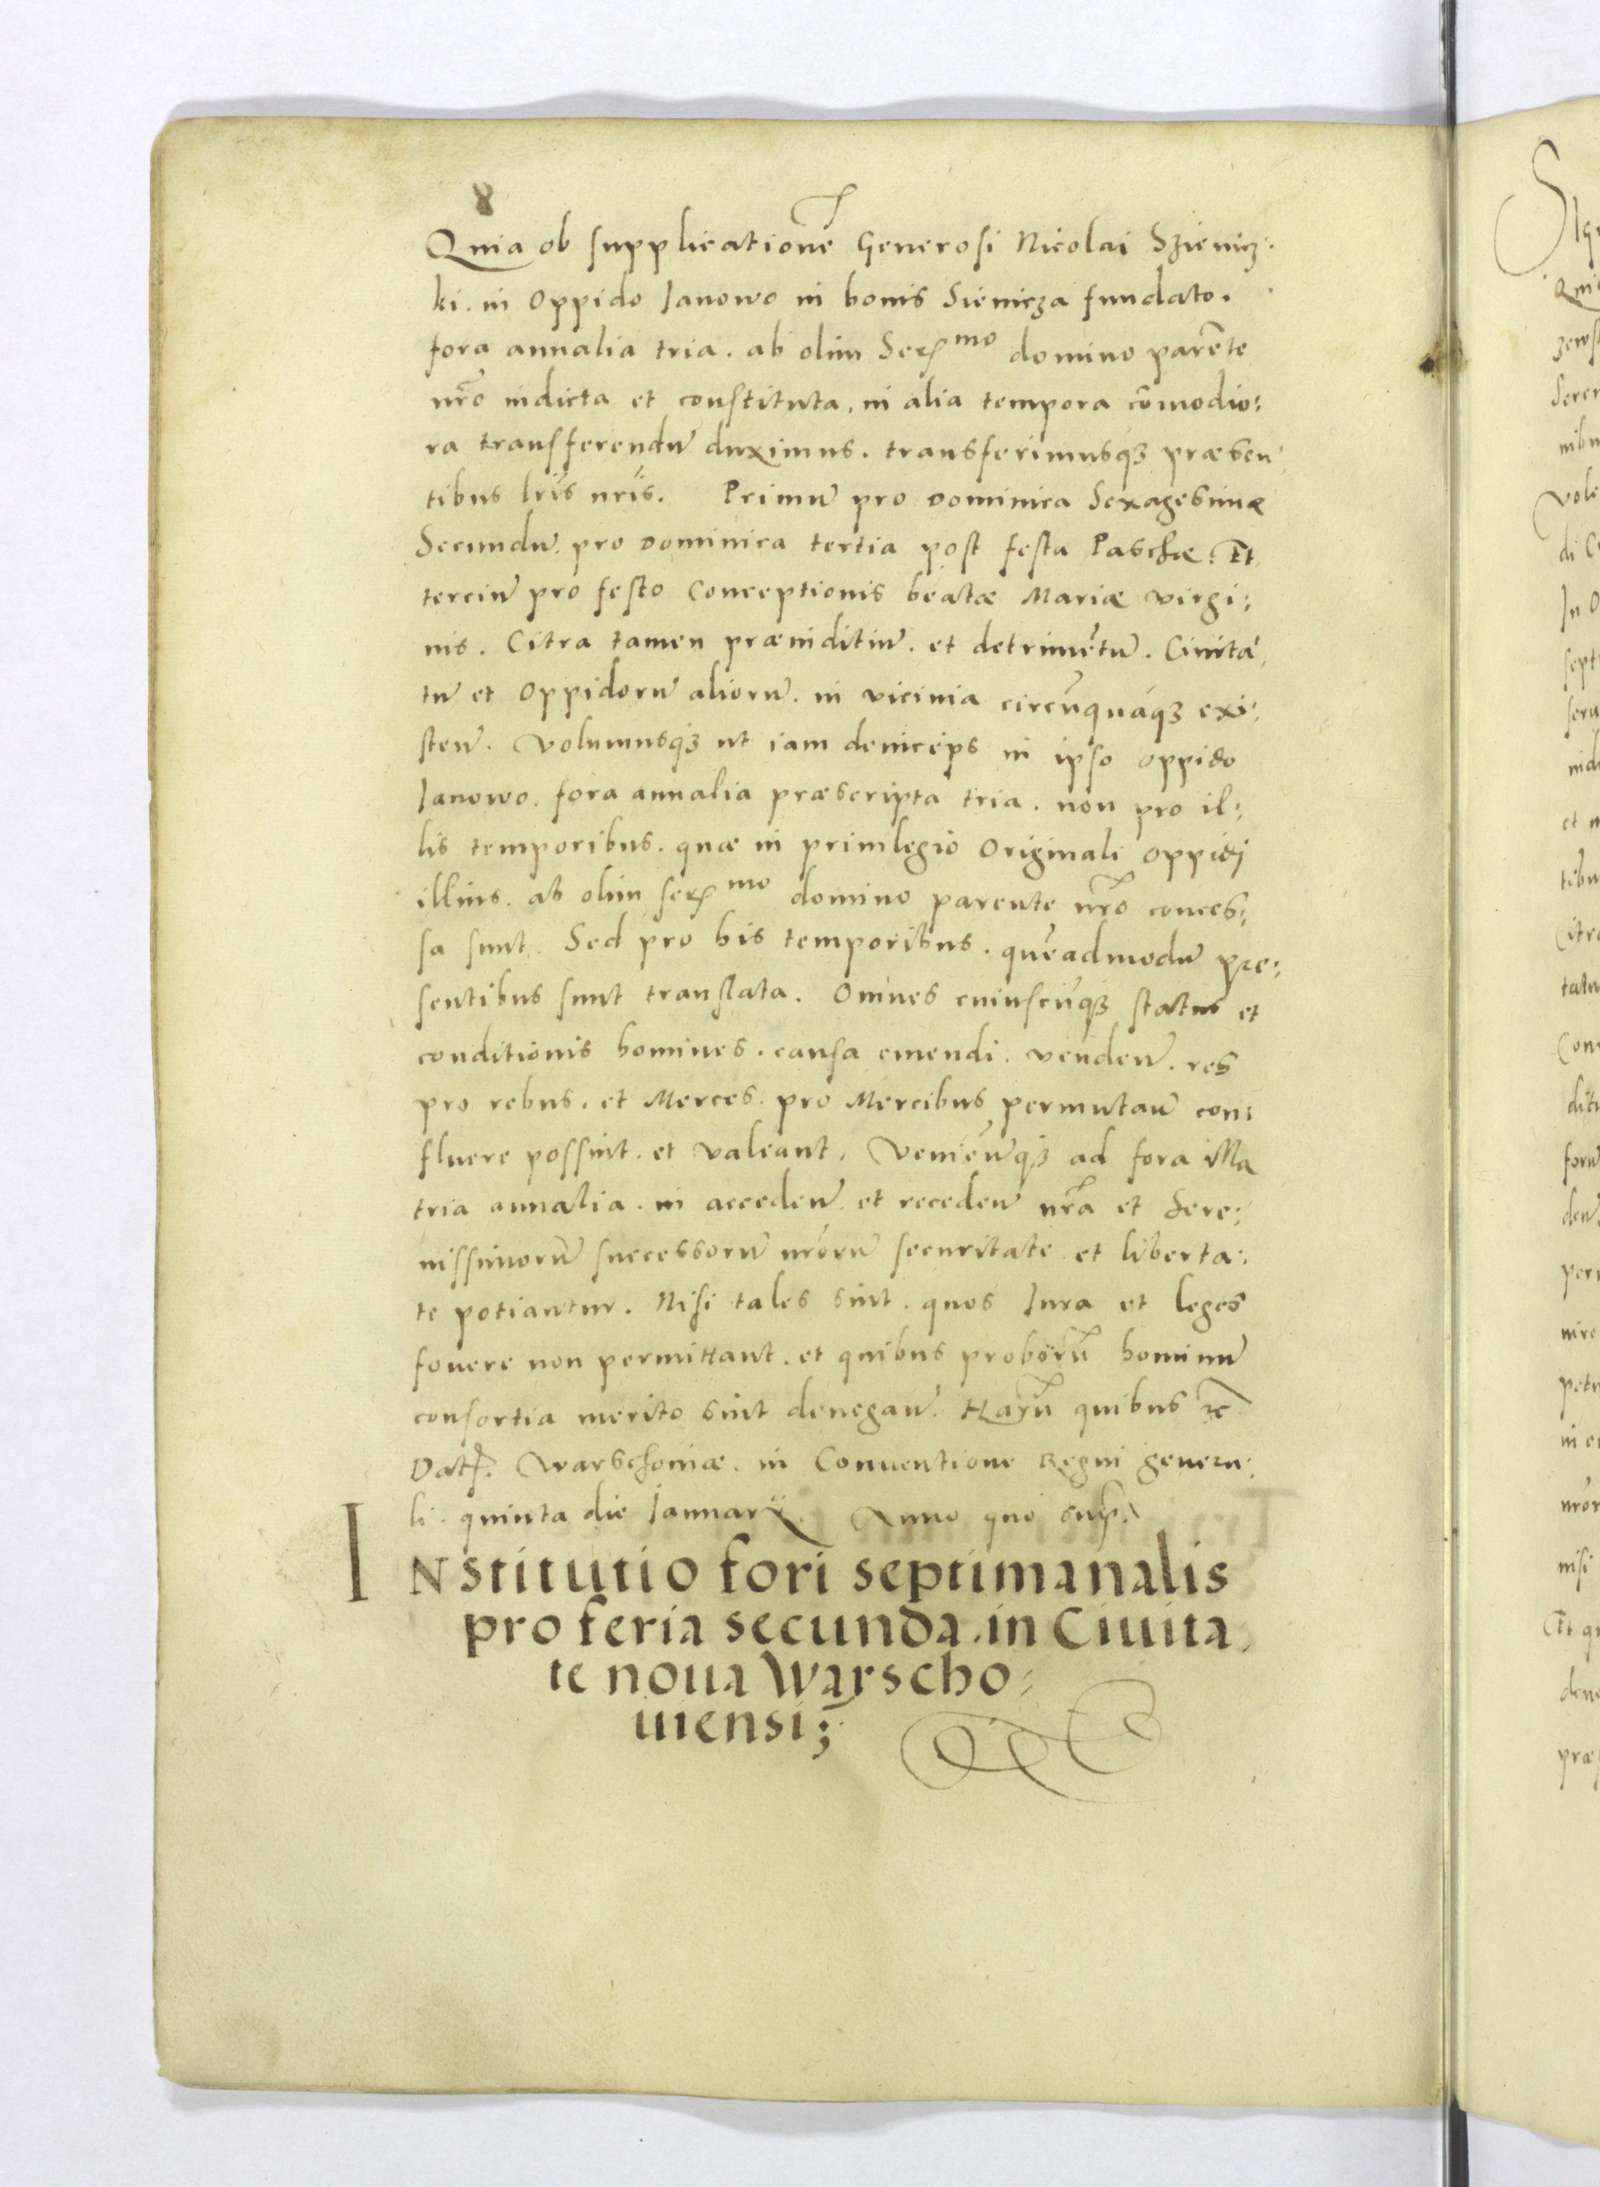 Quia ob supplicationē Generosi Nicolai Szienicz.
ki. in Oppido Ianowo in bonis Sienicza fundato.
fora annalia tria. ab olim Ser^mo domino parēte
nr̄o indicta et constituta, in alia tempora cōmodio:
ra transferendū duximus. transferimusqꝫ præsen
tibus lr̄is nr̄is. Primū pro Dominica Sexagesimæ
Secundū. pro Dominica tertia post festa Paschæ. Et
terciū pro festo Conceptionis beatæ Mariæ virgi:
nis. Citra tamen præiuditiū. et detrimētū. Ciuita
tū et Oppidorū aliorū. in vicinia circūquáqꝫ exi:
sten̄. Volumusqꝫ ut iam deinceps in ipso oppido
Ianowo. fora annalia præscripta tria. non pro il:
lis temporibus. quæ in priuilegio Originali oppidj
illius. ab olim ser^mo domino parente nr̄o conces:
sa sunt. Sed pro his temporibus. quēadmodū præ:
sentibus sunt translata. Omnes cuiuscūqꝫ status et
conditionis homines. causa emendi. venden̄. res
pro rebus. et Merces. pro Mercibus permutan̄ con:
fluere possint. et valeant. Venien̄qꝫ ad fora illa
tria annalia. in acceden̄. et receden̄ nr̄a et Sere:
nissimorū successorū nr̄orū securitate et liberta:
te potiantur. Nisi tales sint. quos Iura et leges
fouere non permittant. et quibus proborū hominū
consortia merito sint denegan̄. Harū quibus ꝛc̄
Dat. Warschouiæ. in Conuentione Regni genera:
li. quinta die Ianuarij. Anno quo sup.
INstitutio fori septimanalis
pro feria secunda. in Ciuita
te noua Warscho:
uiensi;